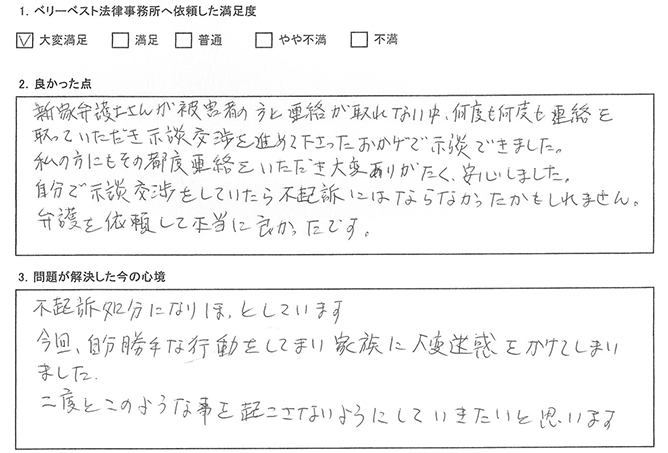 1. ベリーベスト法律事務所へ依頼した満足度
☑ 大変満足 □ 満足 □ 普通 □ やや不満 □ 不満
2. 良かった点
新家弁護士さんが被害者の方と連絡が取れない中、何度も何度も連絡を
取っていただき示談交渉を進めて下さったおかげで示談できました。
私の方にもその都度連絡をいただき大変ありがたく、安心しました。
自分で示談交渉をしていたら不起訴にはならなかったかもしれません。
弁護を依頼して本当に良かったです。
3. 問題が解決した今の心境
不起訴処分になりほっとしています
今回、自分勝手な行動をしてまい家族に大変迷惑をかけてしまい
ました.
二度とこのような事を起こさないようにしていきたいと思います